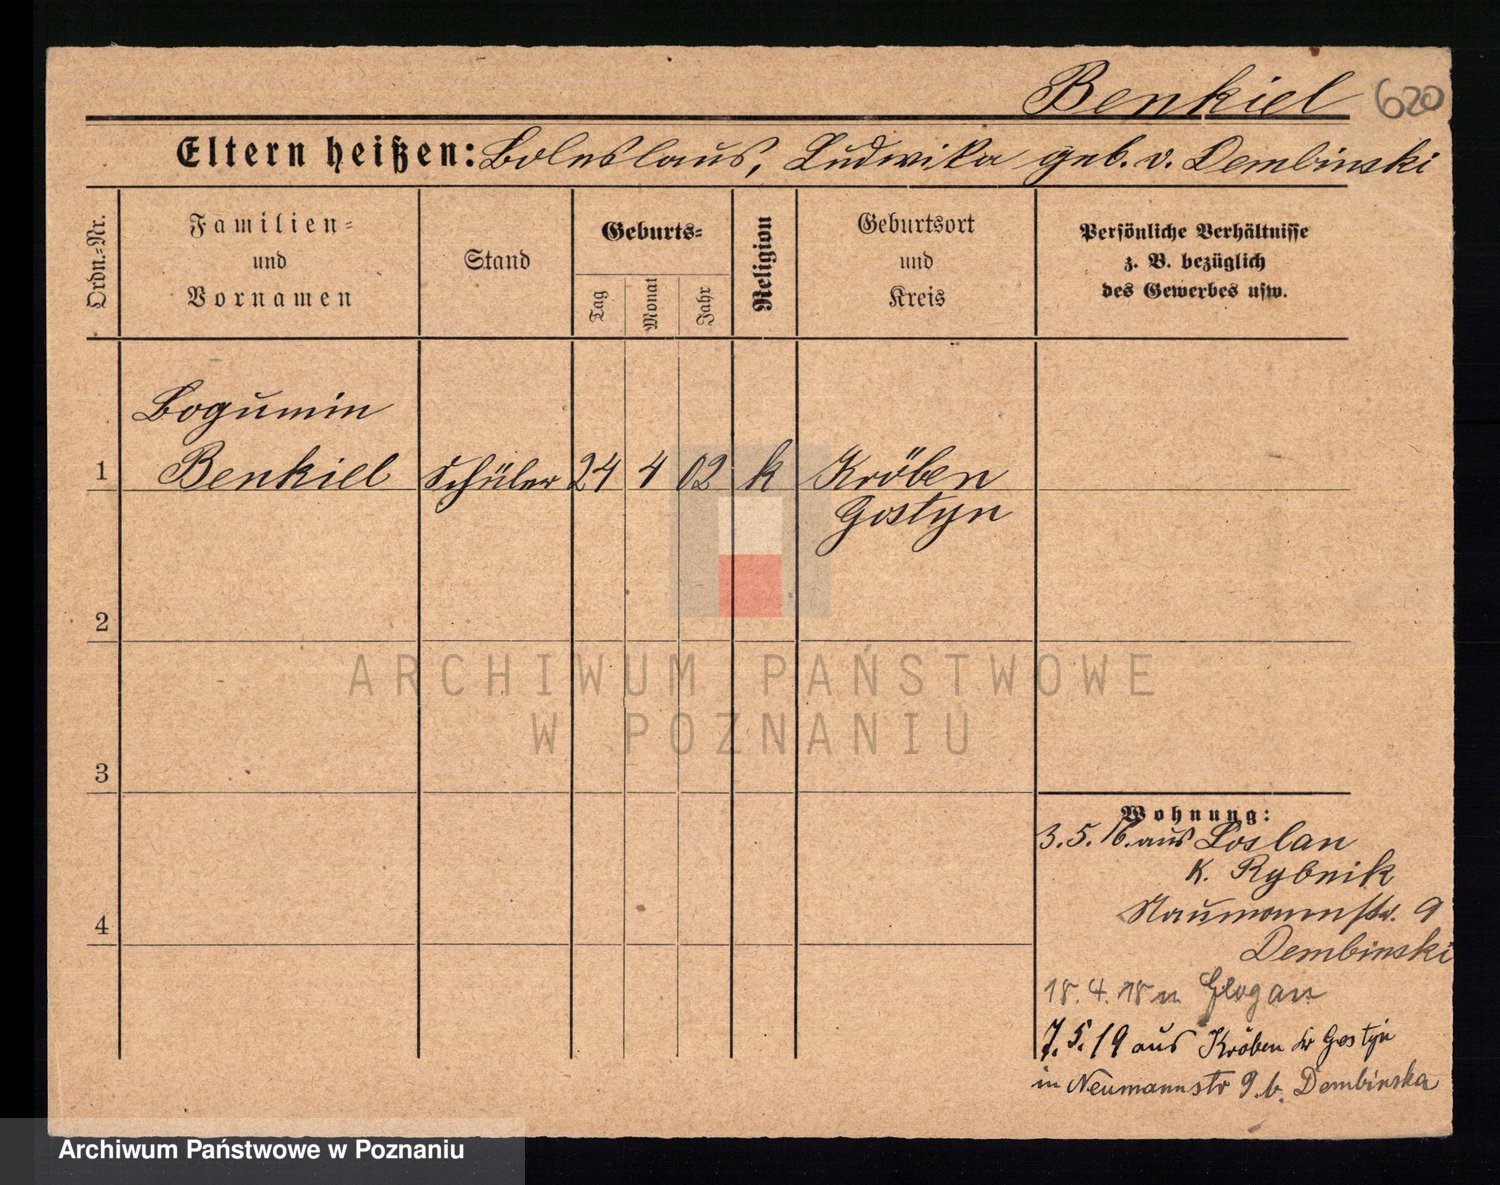 Benkiel 620
Eltern heißen: Boleslaus, Ludwika geb. v. Dembinski
Ordn.-Nr.
Familien-
und
Vornamen
Stand
Geburts-
Tag
Monat
Jahr
Religion
Geburtsort
und
Kreis
Persönliche Verhältnisse
z. B. bezüglich
des Gewerbes usw.
Bogumin
1 Benkiel Schüler 24 4 02 k Kröben
Gostyn
2
3
4
Wohnung:
3.5.16. aus Loslau
K. Rybnik
Naumannstr. 9
Dembinski
18.4.18 n Glogau
7.5.19 aus Kröben Kr Gostyn
in Neumannstr 9 b. Dembinska
ARCHIWUM PAŃSTWOWE
W POZNANIU
Archiwum Państwowe w Poznaniu